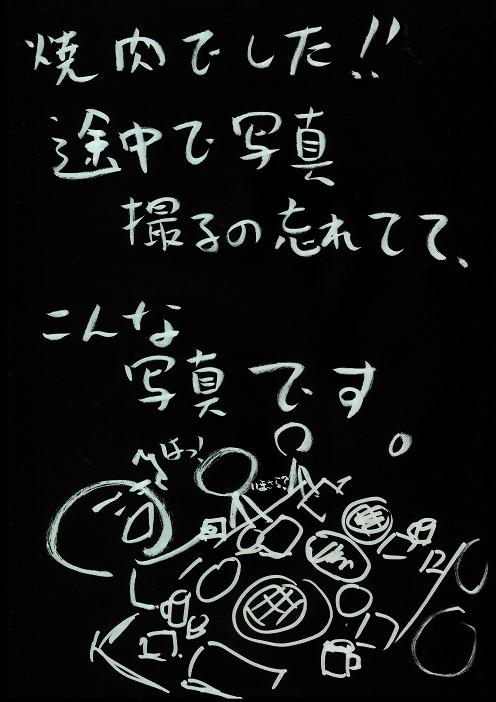 焼肉でした!!
途中で写真
撮るの忘れてて、
こんな
写真です。
はっ!